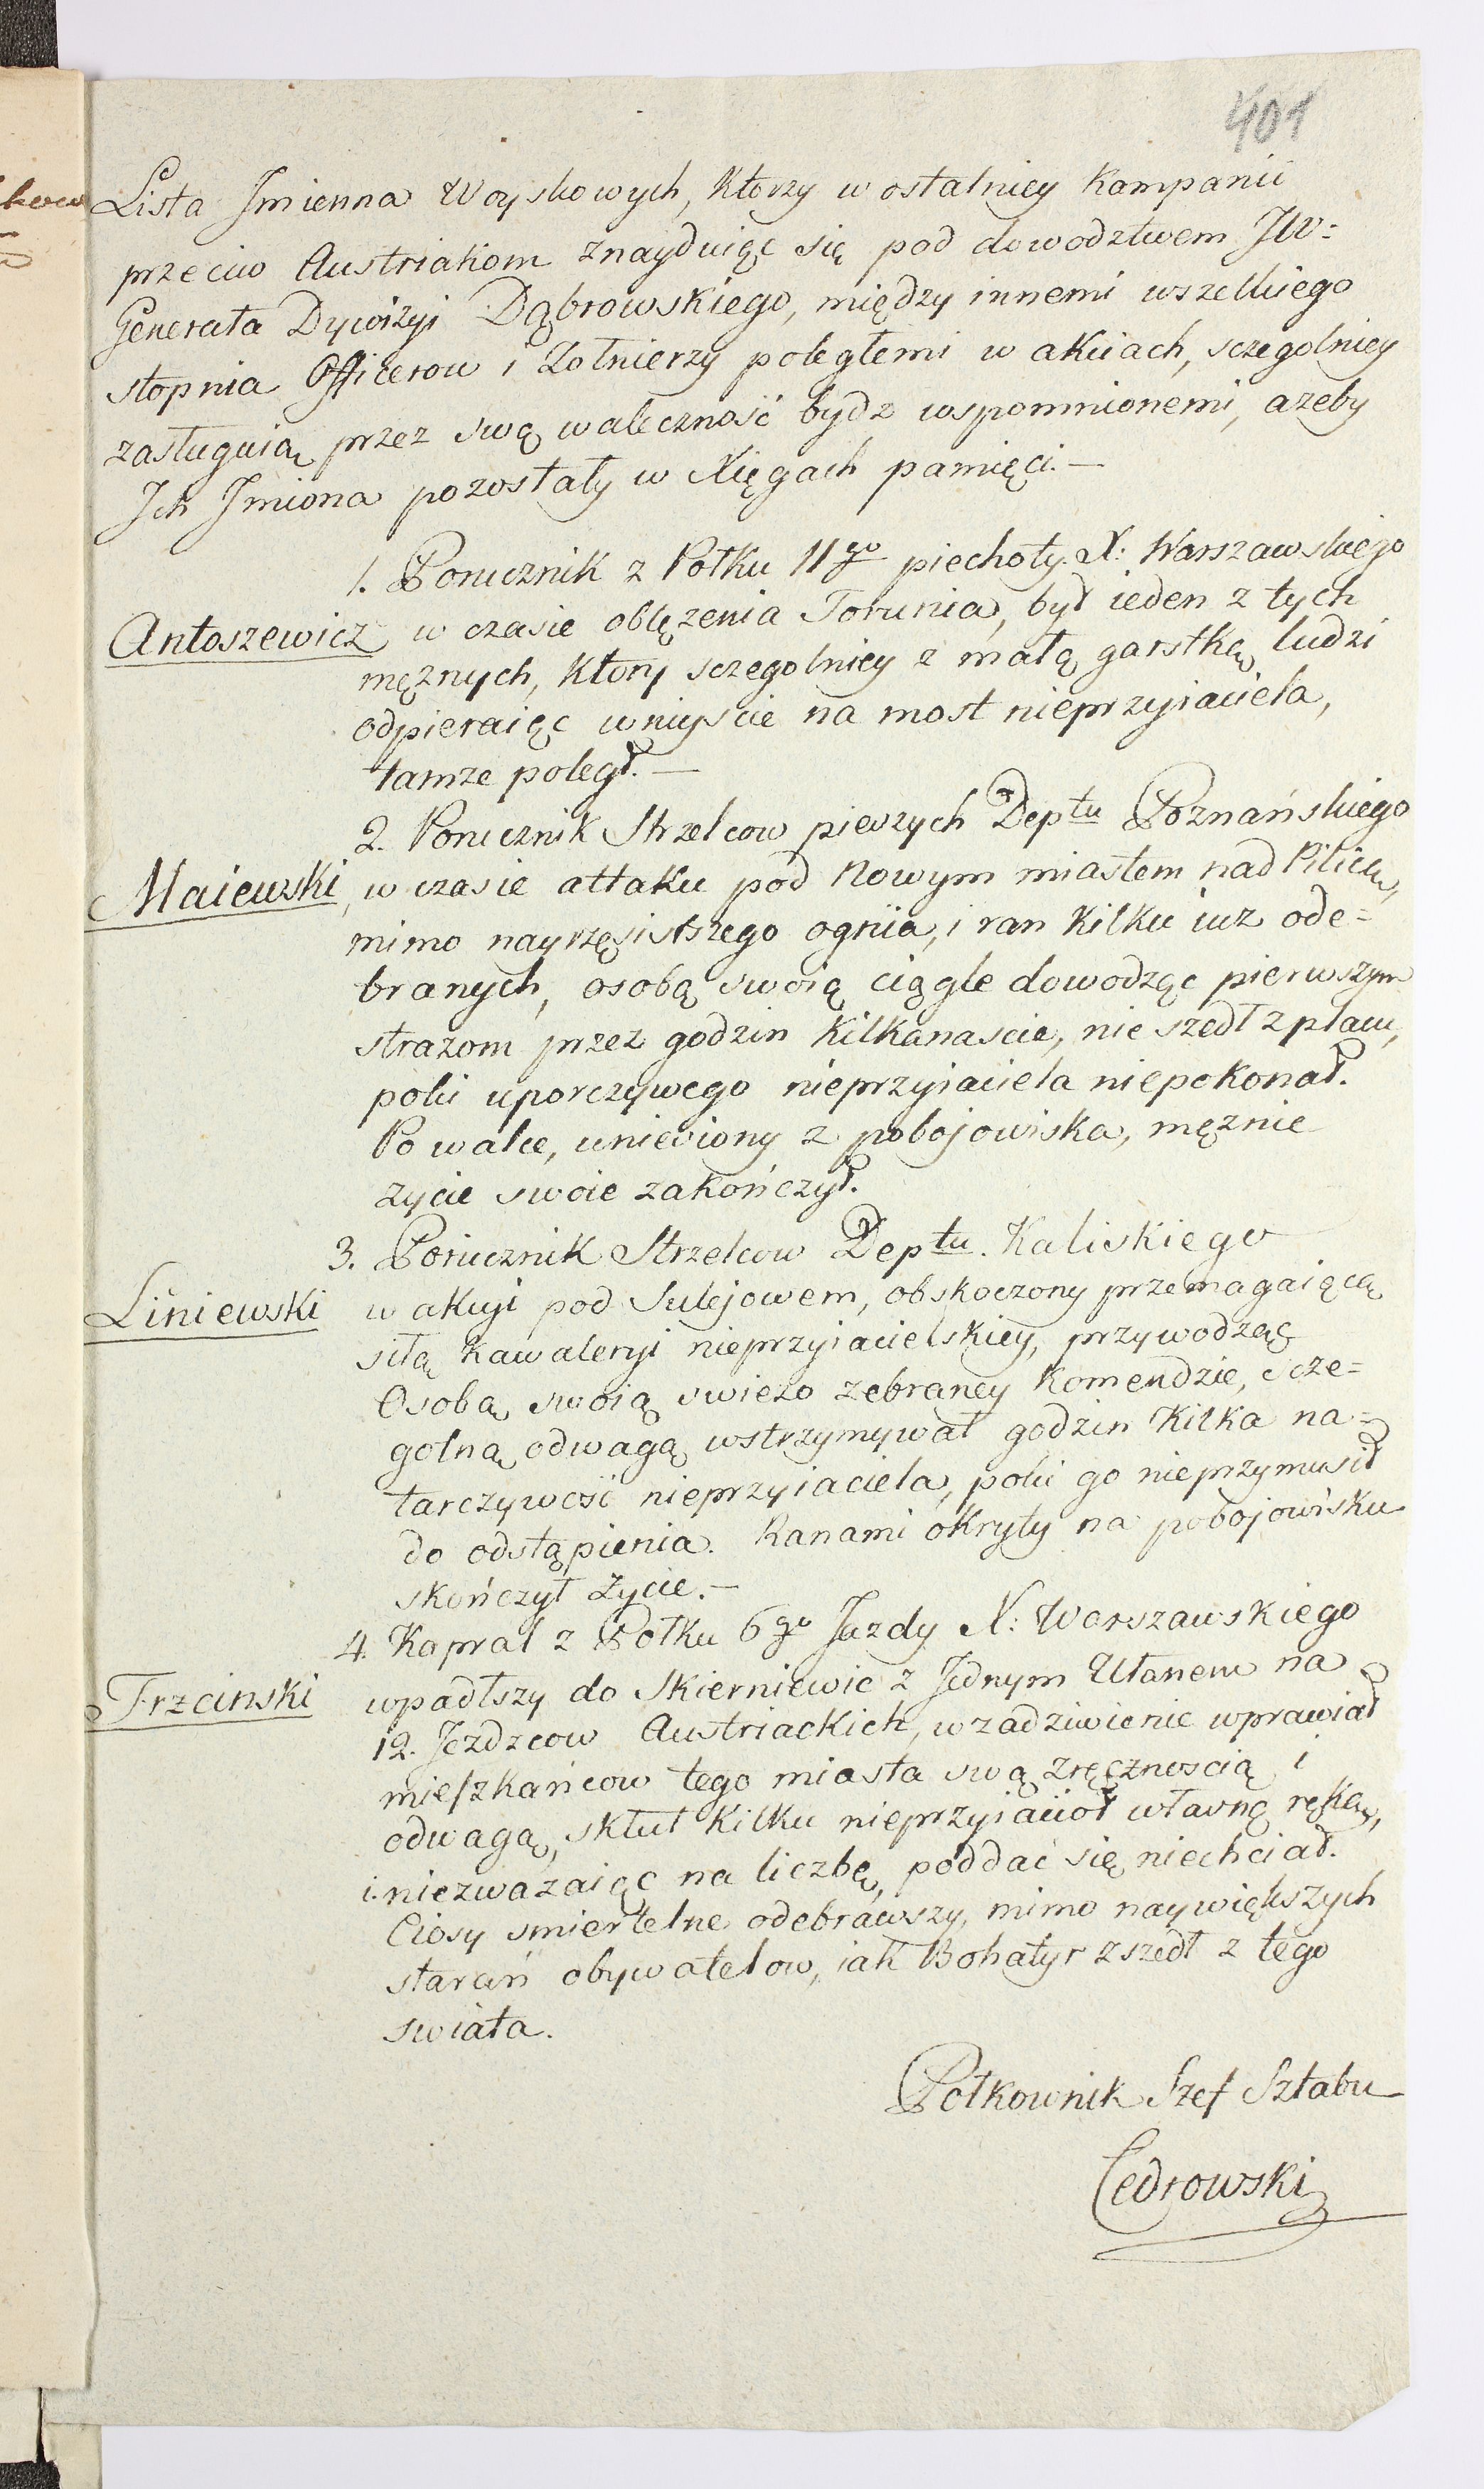 401
Lista Jmienna Woyskowych, Ktorzy w ostatniey Kampanii
przeciw Austriakom znayduięc się pod dowodztwem JW:
Generała Dywizyi Dąbrowskiego, między innemi wszelkiego
stopnia Officerow i Zołnierzy poległemi w akciach, sczegolniey
zasługuią przez swą waleczność bydz wspomnionemi, azeby
Jch Jmiona pozostały w Xięgach pamięci.—
1. Porucznik z Połku 11go piechoty X: Warszawskiego
Antoszewicz w czasie oblęzenia Torunia, był ieden z tych
męznych, Ktory sczegolniey z małą garstką ludzi
odpieraięc wniyście na most nieprzyiaciela,
tamze poległ.—
2. Porucznik Strzelcow pieszych Deptu Poznańskiego
Maiewski, w czasie attaku pod Nowym miastem nad Pilicą,
mimo nayrzęsistszego ognia, i ran Kilku iuz ode=
branych, osobą swoią ciągle dowodzęc pierwszym
strazom przez godzin Kilkanascie, nie szedł z placu,
poki uporczywego nieprzyiaciela niepokonał.
Po walce, uniesiony z pobojowiska, męznie
zycie swoie zakończył.
3. Porucznik Strzelcow Deptu. Kaliskiego
Liniewski w akcyi pod Sulejowem, obskoczony przemagaięcą
siłą Kawaleryi nieprzyiacielskiey, przywodzęc
Osobą swoią swiezo zebraney Komendzie, scze=
golną odwagą wstrzymywał godzin Kilka na=
tarczywość nieprzyiaciela, poki go nieprzymusił
do odstąpienia. Ranami okryty na pobojowisku
skończył zycie.—
4. Kapral z Połku 6go Jazdy X: Warszawskiego
Trzcinski wpadłszy do Skierniewic z Jednym Ułanem na
12. Jezdzcow Austriackich, w zadziwienie wprawiał
mieszkańcow tego miasta swą zręcznoscią i
odwagą, skłuł Kilku nieprzyiacioł własną ręką,
i niezwazaięc na liczbę, poddać się niechciał.
Ciosy smiertelne odebrawszy, mimo naywiększych
starań obywatelow, iak Bohatyr zszedł z tego
swiata.
Połkownik Szef Sztabu
Cedrowski